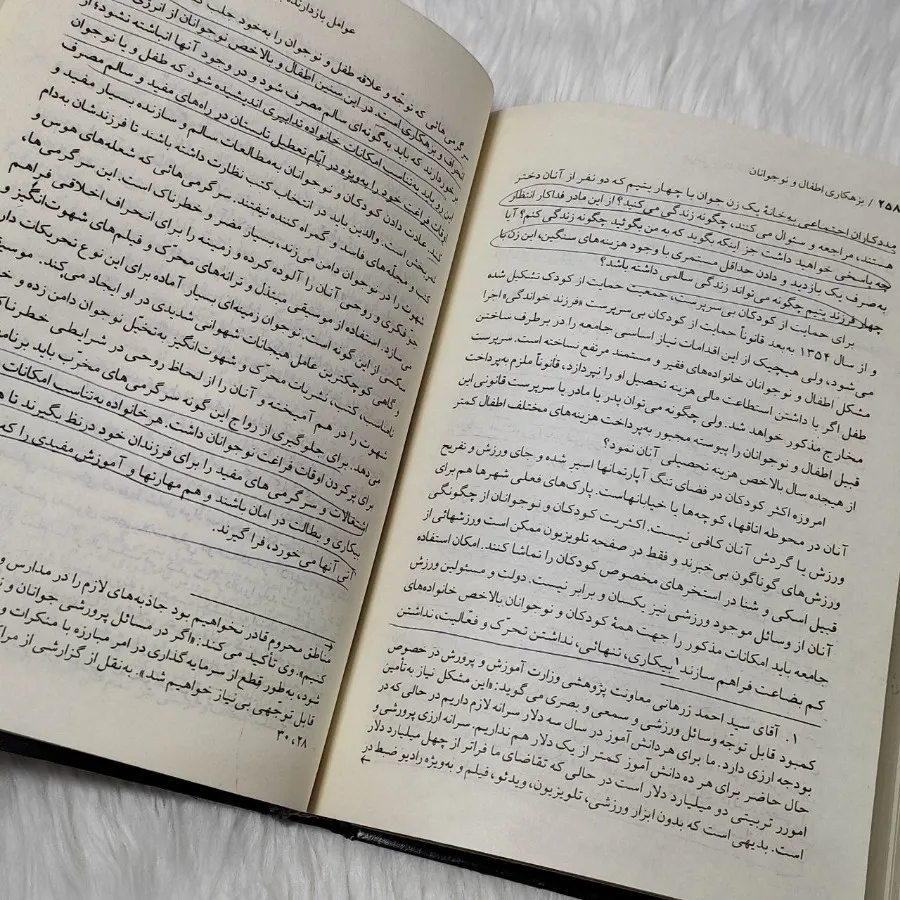 ۲۵۸ / بزهکاری اطفال و نوجوانان
مددکاران اجتماعی به‌خانهٔ یک زن جوان با چهار یتیم که دو نفر از آنان دختر
هستند، مراجعه و سئوال می‌کنند، چگونه زندگی می‌کنید؟ از این مادر فداکار انتظار
چه پاسخی خواهید داشت جز اینکه بگوید که به من بگوئید چگونه زندگی کنم؟ آیا
به صرف یک بازدید و دادن حداقل مستمری با وجود هزینه‌های سنگین، این زن با
چهار فرزند یتیم چگونه می‌تواند زندگی سالمی داشته باشد؟
برای حمایت از کودکان بی‌سرپرست، جمعیت حمایت از کودک تشکیل شده
و از سال ۱۳۵۴ به‌بعد قانوناً حمایت از کودکان بی‌سرپرست «فرزند خواندگی» اجرا
می‌شود، ولی هیچیک از این اقدامات نیاز اساسی جامعه را در برطرف ساختن
مشکل اطفال و نوجوانان خانواده‌های فقیر و مستمند مرتفع نساخته است. سرپرست
طفل اگر با داشتن استطاعت مالی هزینه تحصیل او را نپردازد، قانوناً ملزم به‌پرداخت
مخارج مذکور خواهد شد. ولی چگونه می‌توان پدر یا مادر یا سرپرست قانونی این
قبیل اطفال و نوجوانان را پیوسته مجبور به‌پرداخت هزینه‌های مختلف اطفال کمتر
از هیجده سال بالاخص هزینه تحصیلی آنان نمود؟
امروزه اکثر کودکان در فضای تنگ آپارتمانها اسیر شده و جای ورزش و تفریح
آنان در محوطه اتاقها، کوچه‌ها یا خیابانهاست. پارک‌های فعلی شهرها هم برای
ورزش یا گردش آنان کافی نیست. اکثریت کودکان و نوجوانان از چگونگی
ورزش‌های گوناگون بی خبرند و فقط در صفحه تلویزیون ممکن است ورزشهائی از
قبیل اسکی و شنا در استخرهای مخصوص کودکان را تماشا کنند. امکان استفاده
آنان از وسائل موجود ورزشی نیز یکسان و برابر نیست. دولت و مسئولین ورزش
جامعه باید امکانات مذکور را جهت همهٔ کودکان و نوجوانان بالاخص خانواده‌های
کم بضاعت فراهم سازند۱ بیکاری، تنهائی، نداشتن تحرّک و فعالیت، نداشتن
۱. آقای سید احمد زرهانی معاونت پژوهشی وزارت آموزش و پرورش در خصوص
کمبود قابل توجه وسائل ورزشی و سمعی و بصری می‌گوید: «این مشکل نیاز به‌تأمین
بودجه ارزی دارد. ما برای هر دانش آموز در سال سه دلار سرانه لازم داریم در حالی که در
حال حاضر برای هر ده دانش آموز کمتر از یک دلار هم نداریم. سرانه ارزی پرورشی و
امور تربیتی دو میلیارد دلار است در حالی که تقاضای ما فراتر از چهل میلیارد دلار
است. بدیهی است که بدون ابزار ورزشی، تلویزیون، ویدئو، فیلم و به‌ویژه رادیو ضبط در
عوامل بازدارنده
گرمی هائی که توجّه و علاقه طفل و نوجوان را به‌خود جلب
انحراف و بزهکاری است. در این سنین اطفال و بالاخص نوجوانان از انرژی
برخوردارند که باید به گونه‌ای سالم مصرف شود و در وجود آنها انباشته نشود؛ از
این رو باید به‌تناسب امکانات خانواده تدابیری اندیشیده شود که طفل و یا نوجوان
اوقات فراغت خود را به‌ویژه در ایّام تعطیل تابستان در راه‌های مفید و سالم مصرف
کند. عادت دادن کودکان و نوجوانان به‌مطالعات سالم و سازنده بسیار مفید و
ثمربخش است. والدین باید در انتخاب کتب نظارت داشته باشند تا فرزندشان به‌دام
کتب و مجله‌های فاسد و گمراه کننده نیفتند. سرگرمی هائی که شعله‌های هوس و
شهوت را در نوجوان دامن می‌زند، بسیار مضر و خطرناک است. این سرگرمی‌ها،
جو فکری و روحی آنان را آلوده کرده و زمینه را برای انحراف اخلاقی فراهم
می سازد. استفاده از موسیقی مبتذل و ترانه‌های محرک و فیلم‌های شهوت‌انگیز و
یکی از این گونه است. نوجوان زمینه‌ای بسیار آماده برای این نوع تحریکات دارد
و گاهی کوچکترین عامل هیجانات شهوانی شدیدی در او ایجاد می‌کند.
نامناسب، کتب، نشریات محرک و شهوت‌انگیز به‌تخیل نوجوان دامن زده و
شهوت را در هم آمیخته و آنان را از لحاظ روحی در شرایطی خطرناک
می‌دهد. برای جلوگیری از رواج این گونه سرگرمی‌های مخرّب باید
برای پر کردن اوقات فراغت نوجوانان داشت. هر خانواده به‌تناسب امکانات
اشتغالات و سرگرمی های مفید را برای فرزندان خود در نظر بگیرند تا هم
بیکاری و بطالت در امان باشند و هم مهارتها و آموزش مفیدی را که
آتی آنها می‌خورد، فرا گیرند.
مناطق محروم قادر نخواهیم بود جاذبه‌های لازم را در مدارس و
کنیم». وی تأکید می‌کند: «اگر در مسائل پرورشی جوانان و
شود، به‌طور قطع از سرمایه‌گذاری در امر مبارزه با منکرات و
قابل توجهی بی نیاز خواهیم شد». به‌نقل از گزارشی از
۲۸، ۳۰